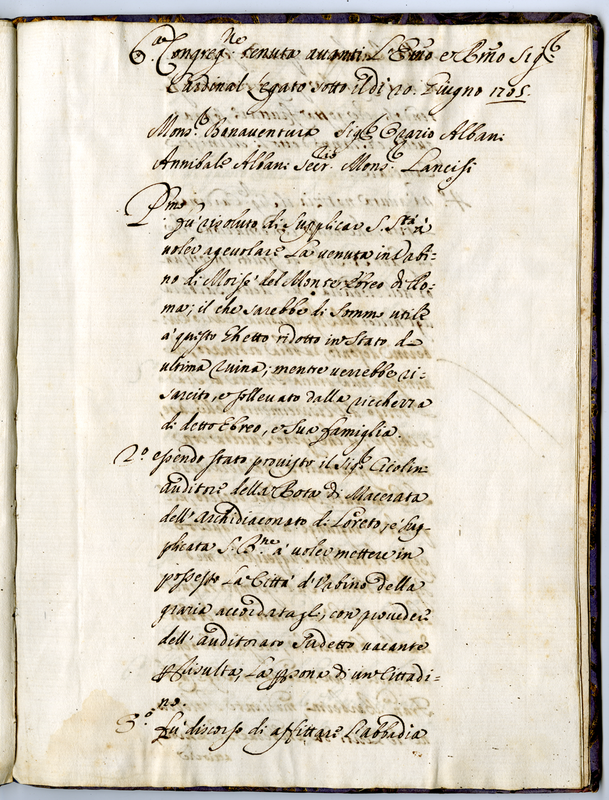 6.a Congreg.ne tenuta avanti l'Em̃o e Rm̃o Sig.r
Cardinal Legato sotto il dì 20. Giugno 1705.
Mons.r Bonaventura Sig.r Orazio Albani
Annibale Albani Secr.rio Mons.r Lancisi
P.mo
Fù risoluto di supplicar S. S.tà à
voler agevolare la venuta in Vrbi-
no di Moisè del Monte Ebreo di Ro-
ma; il che sarebbe di sommo utile
à questo Ghetto ridotto in stato di
ultima ruina; mentre verrebbe ri-
sarcito, e sollevato dalla ricchezza
di detto Ebreo, e sua famiglia.
2.o essendo stato provisto il Sig.r Cicolini
auditore della Rota di Macerata
dell'Archidiaconato di Loreto, è sup-
plicata S. B.ne à voler mettere in
possesso la Città d'Vrbino della
grazia accordatagli, con proveder
dell'auditorato sudetto vacante
p̃ risulta, la p̃sona di un Cittadi-
no.
3.o Fù discorso di affittare l'abbadia